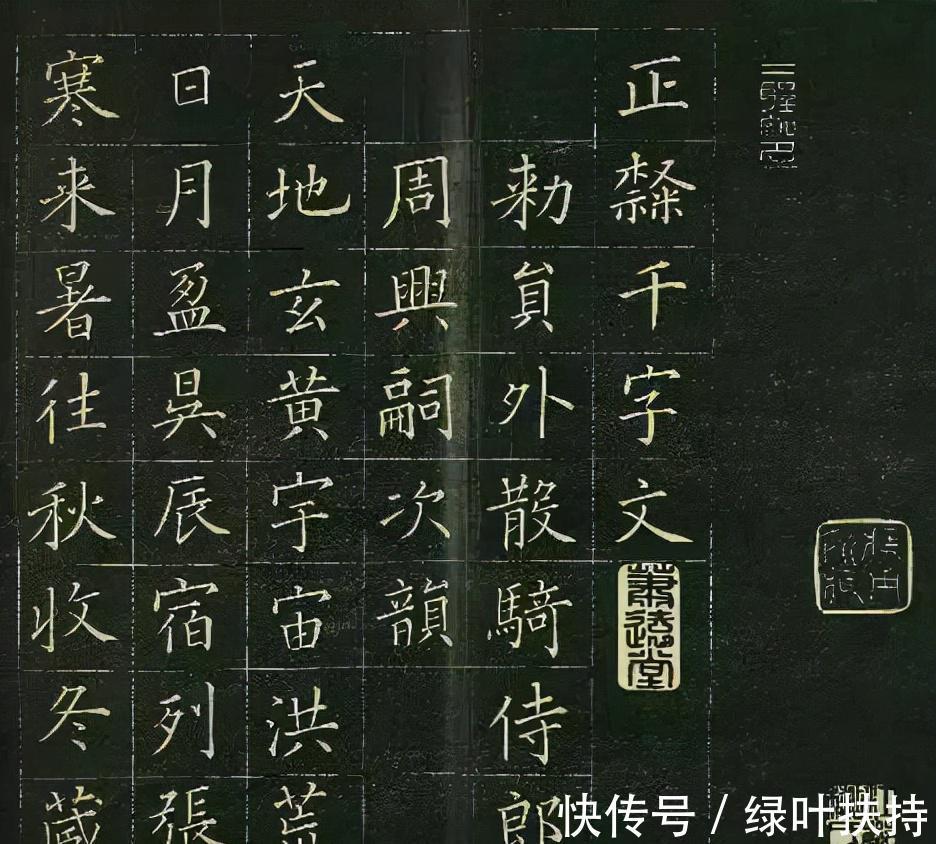 正千字文
勑員外散騎侍郎
周興嗣次韻
天地玄黄宇宙洪荒
日月盈昃辰宿列張
寒来暑往秋收冬藏
快传号 / 绿叶扶持